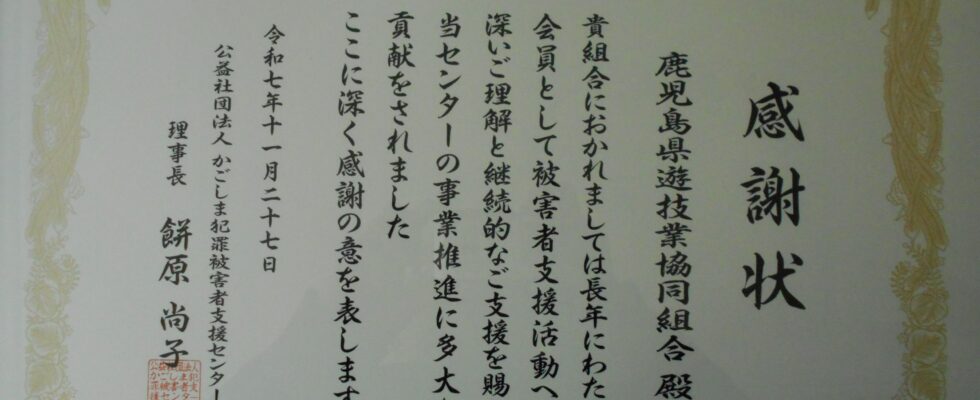 感謝状
鹿児島県遊技業協同組合 殿
貴組合におかれましては長年にわた
会員として被害者支援活動へ
深いご理解と継続的なご支援を賜
当センターの事業推進に多大
貢献をされました
ここに深く感謝の意を表します
令和七年十一月二十七日
公益社団法人 かごしま犯罪被害者支援センター
理事長 餅原 尚子